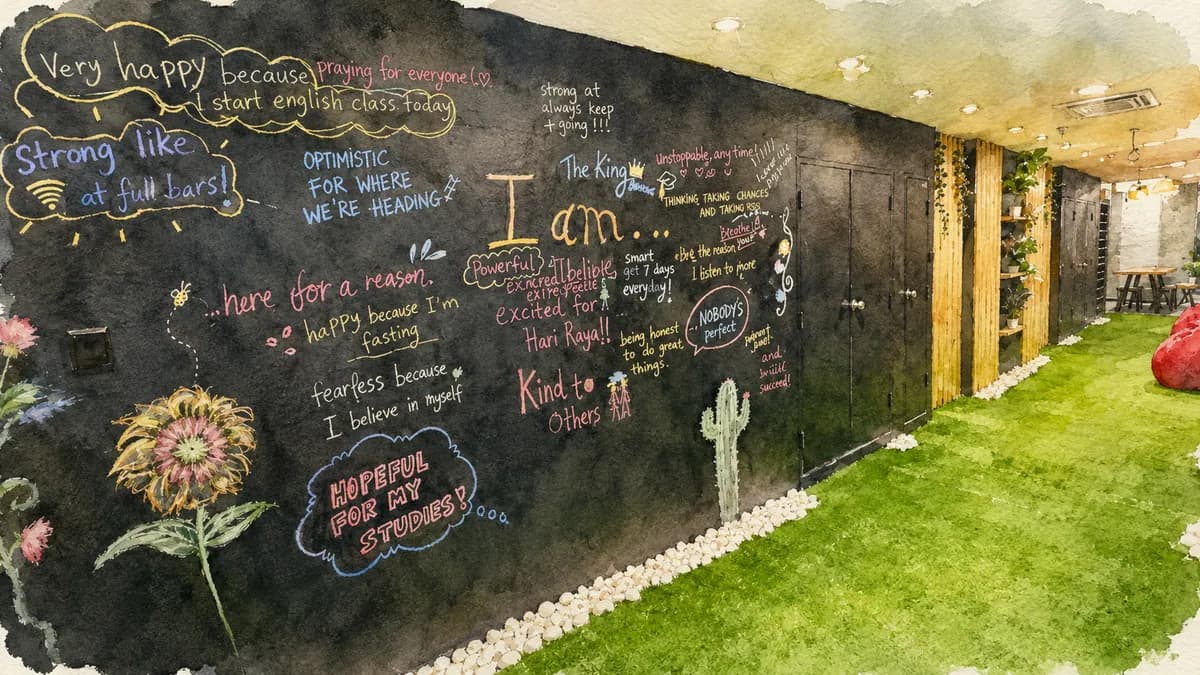 Very happy because
praying for everyone!
I start english class today
Strong like
at full bars!
OPTIMISTIC
FOR WHERE
WE'RE HEADING
strong at
always keep
+ going !!!
The King
unstoppable, any time!
THINKING TAKING CHANCES
AND TAKING
I am...
Breathe
the reason
you!
I listen to more
Powerful
smart
get 7 days
everyday!
...here for a reason.
happy because I'm
fasting
excited for
Hari Raya!!
NOBODY'S
perfect
being honest
to do great
things.
and
succeed!
fearless because
I believe in myself
Kind to
Others
HOPEFUL
FOR MY
STUDIES!